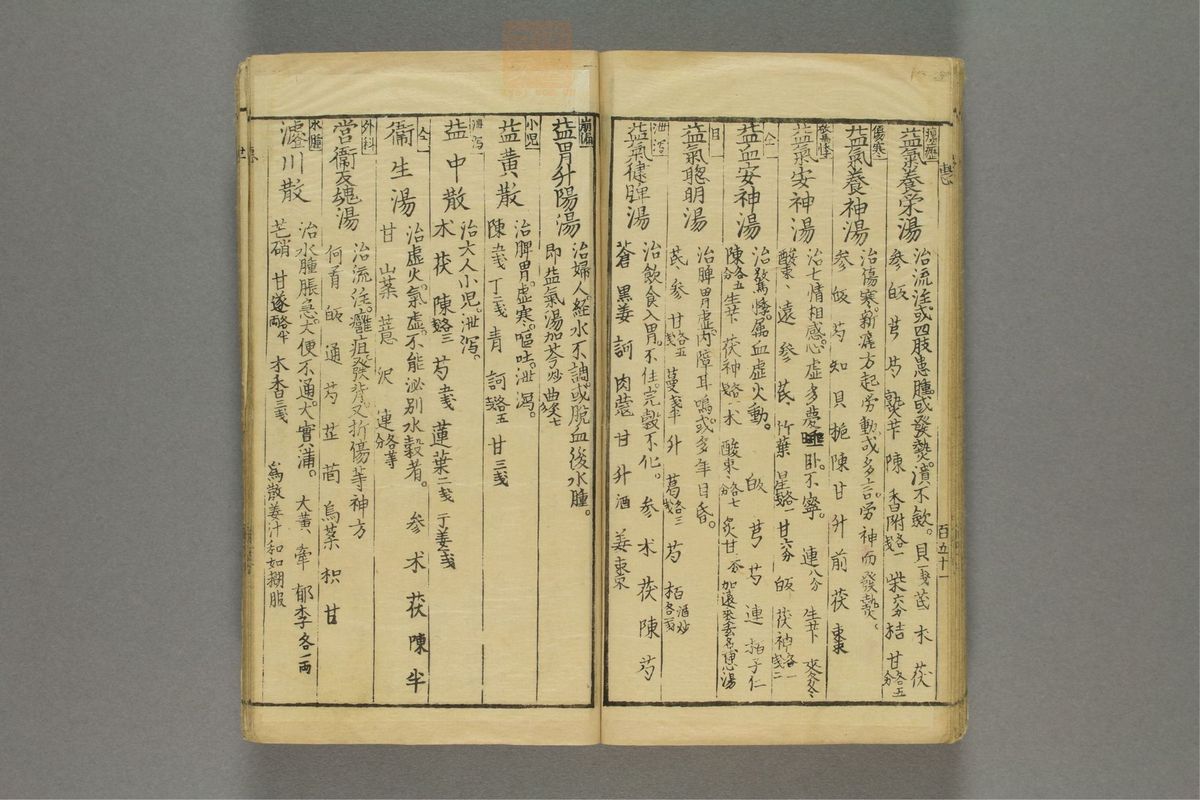 百五十一
癰疽
益氣養荣湯
治流注或四肢患腫或發熱。潰不歛。貝一戔 芪 朮 茯
參 皈 芎 芍 熟芐 陳 香附各一戔 柴六分 桔 甘各五分
傷寒
益氣養神湯
治傷寒。新瘥方起劳動或多言。劳神而發熱。
參 皈 芍 知 貝 栀 陳 甘 升 前 茯 棗
益氣安神湯
治七情相感。心虚多夢睡卧。不寧。 連八分 生芐 麥冬
酸棗、遠 參 芪、竹葉 星各一戔 甘六分 皈 茯神各一戔二
仝
益血安神湯
治驚悸。属血虚火動。 皈 芎 芍 連 栢子仁
陳各五分 生芐 茯神各一戔 朮 酸棗各七分 炙甘
目
益氣聰明湯
治脾胃虚。内障耳鳴。或多年目昏。
芪、參 甘各五戔 蔓戔半 升 葛各三戔 芍 栢酒炒各一戔
泄泻
益氣健脾湯
治飲食入胃。不住。完穀不化。 參 朮 茯 陳 芍
蒼 黒姜 訶 肉蔻 甘 升酒 姜 棗
崩漏
益胃升陽湯
治婦人。經水不調。或脱血後水腫。
即益氣湯加芩炒曲各七
小児
益黄散
治脾胃。虚寒。嘔吐。泄瀉。
陳一戔 丁二戔 青 訶各五戔 甘三戔
溥泻
益中散
治大人小児。泄瀉。
朮 茯 陳各三戔 芍一戔 蓮葉二戔 丁姜一戔
仝
衞生湯
治虚火。氣虚。不能泌别水穀者。 參 朮 茯 陳 半
甘 山葯 薏 沢 連各等分
外科
營衞反魂湯
治流注。癰疽發背。又折傷等神方
何首 皈 通 芍 芷 茴 烏葯 枳 甘
水腫
濬川散
治水腫脹急。大便不通。大實滿。 大黄、牽 郁李各一両
芒硝 甘遂各半両 木香三戔 為散姜汁和如糊服